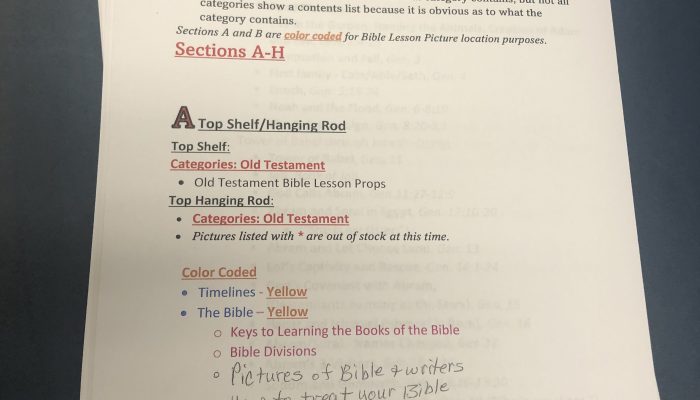 category contains, but not all
categories show a contents list because it is obvious as to what the
category contains.
Sections A and B are color coded for Bible Lesson Picture location purposes.
Sections A-H
A Top Shelf/Hanging Rod
Top Shelf:
Categories: Old Testament
• Old Testament Bible Lesson Props
Top Hanging Rod:
• Categories: Old Testament
• Pictures listed with * are out of stock at this time.
Color Coded
• Timelines - Yellow
• The Bible – Yellow
○ Keys to Learning the Books of the Bible
○ Bible Divisions
○ Pictures of Bible & writers
to treat your Bible